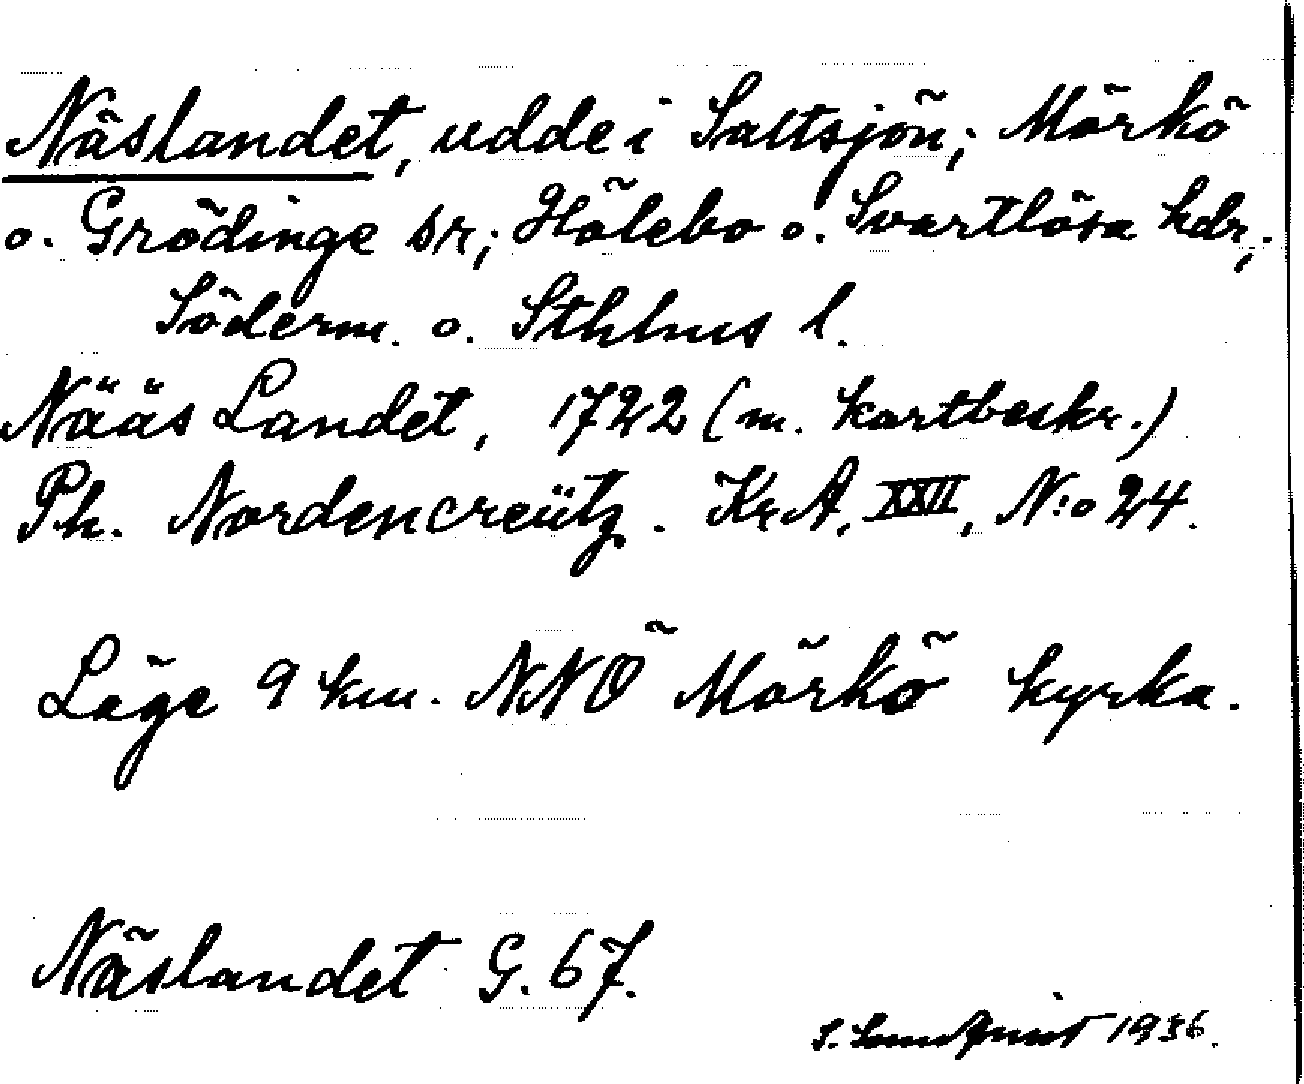 Näslandet, udde i Saltsjön; Mörkö
o. Grödinge sr; Hölebo o. Svartlösa hdr;
Söderm. o. Sthlms l.
Nääs Landet, 1722 (m. kartbeskr.)
Ph. Nordencreütz. Kr.A. XXII, N:o 24.
Läge 9 km. NNÖ Mörkö kyrka.
Näslandet G. 67.
S. 1936.